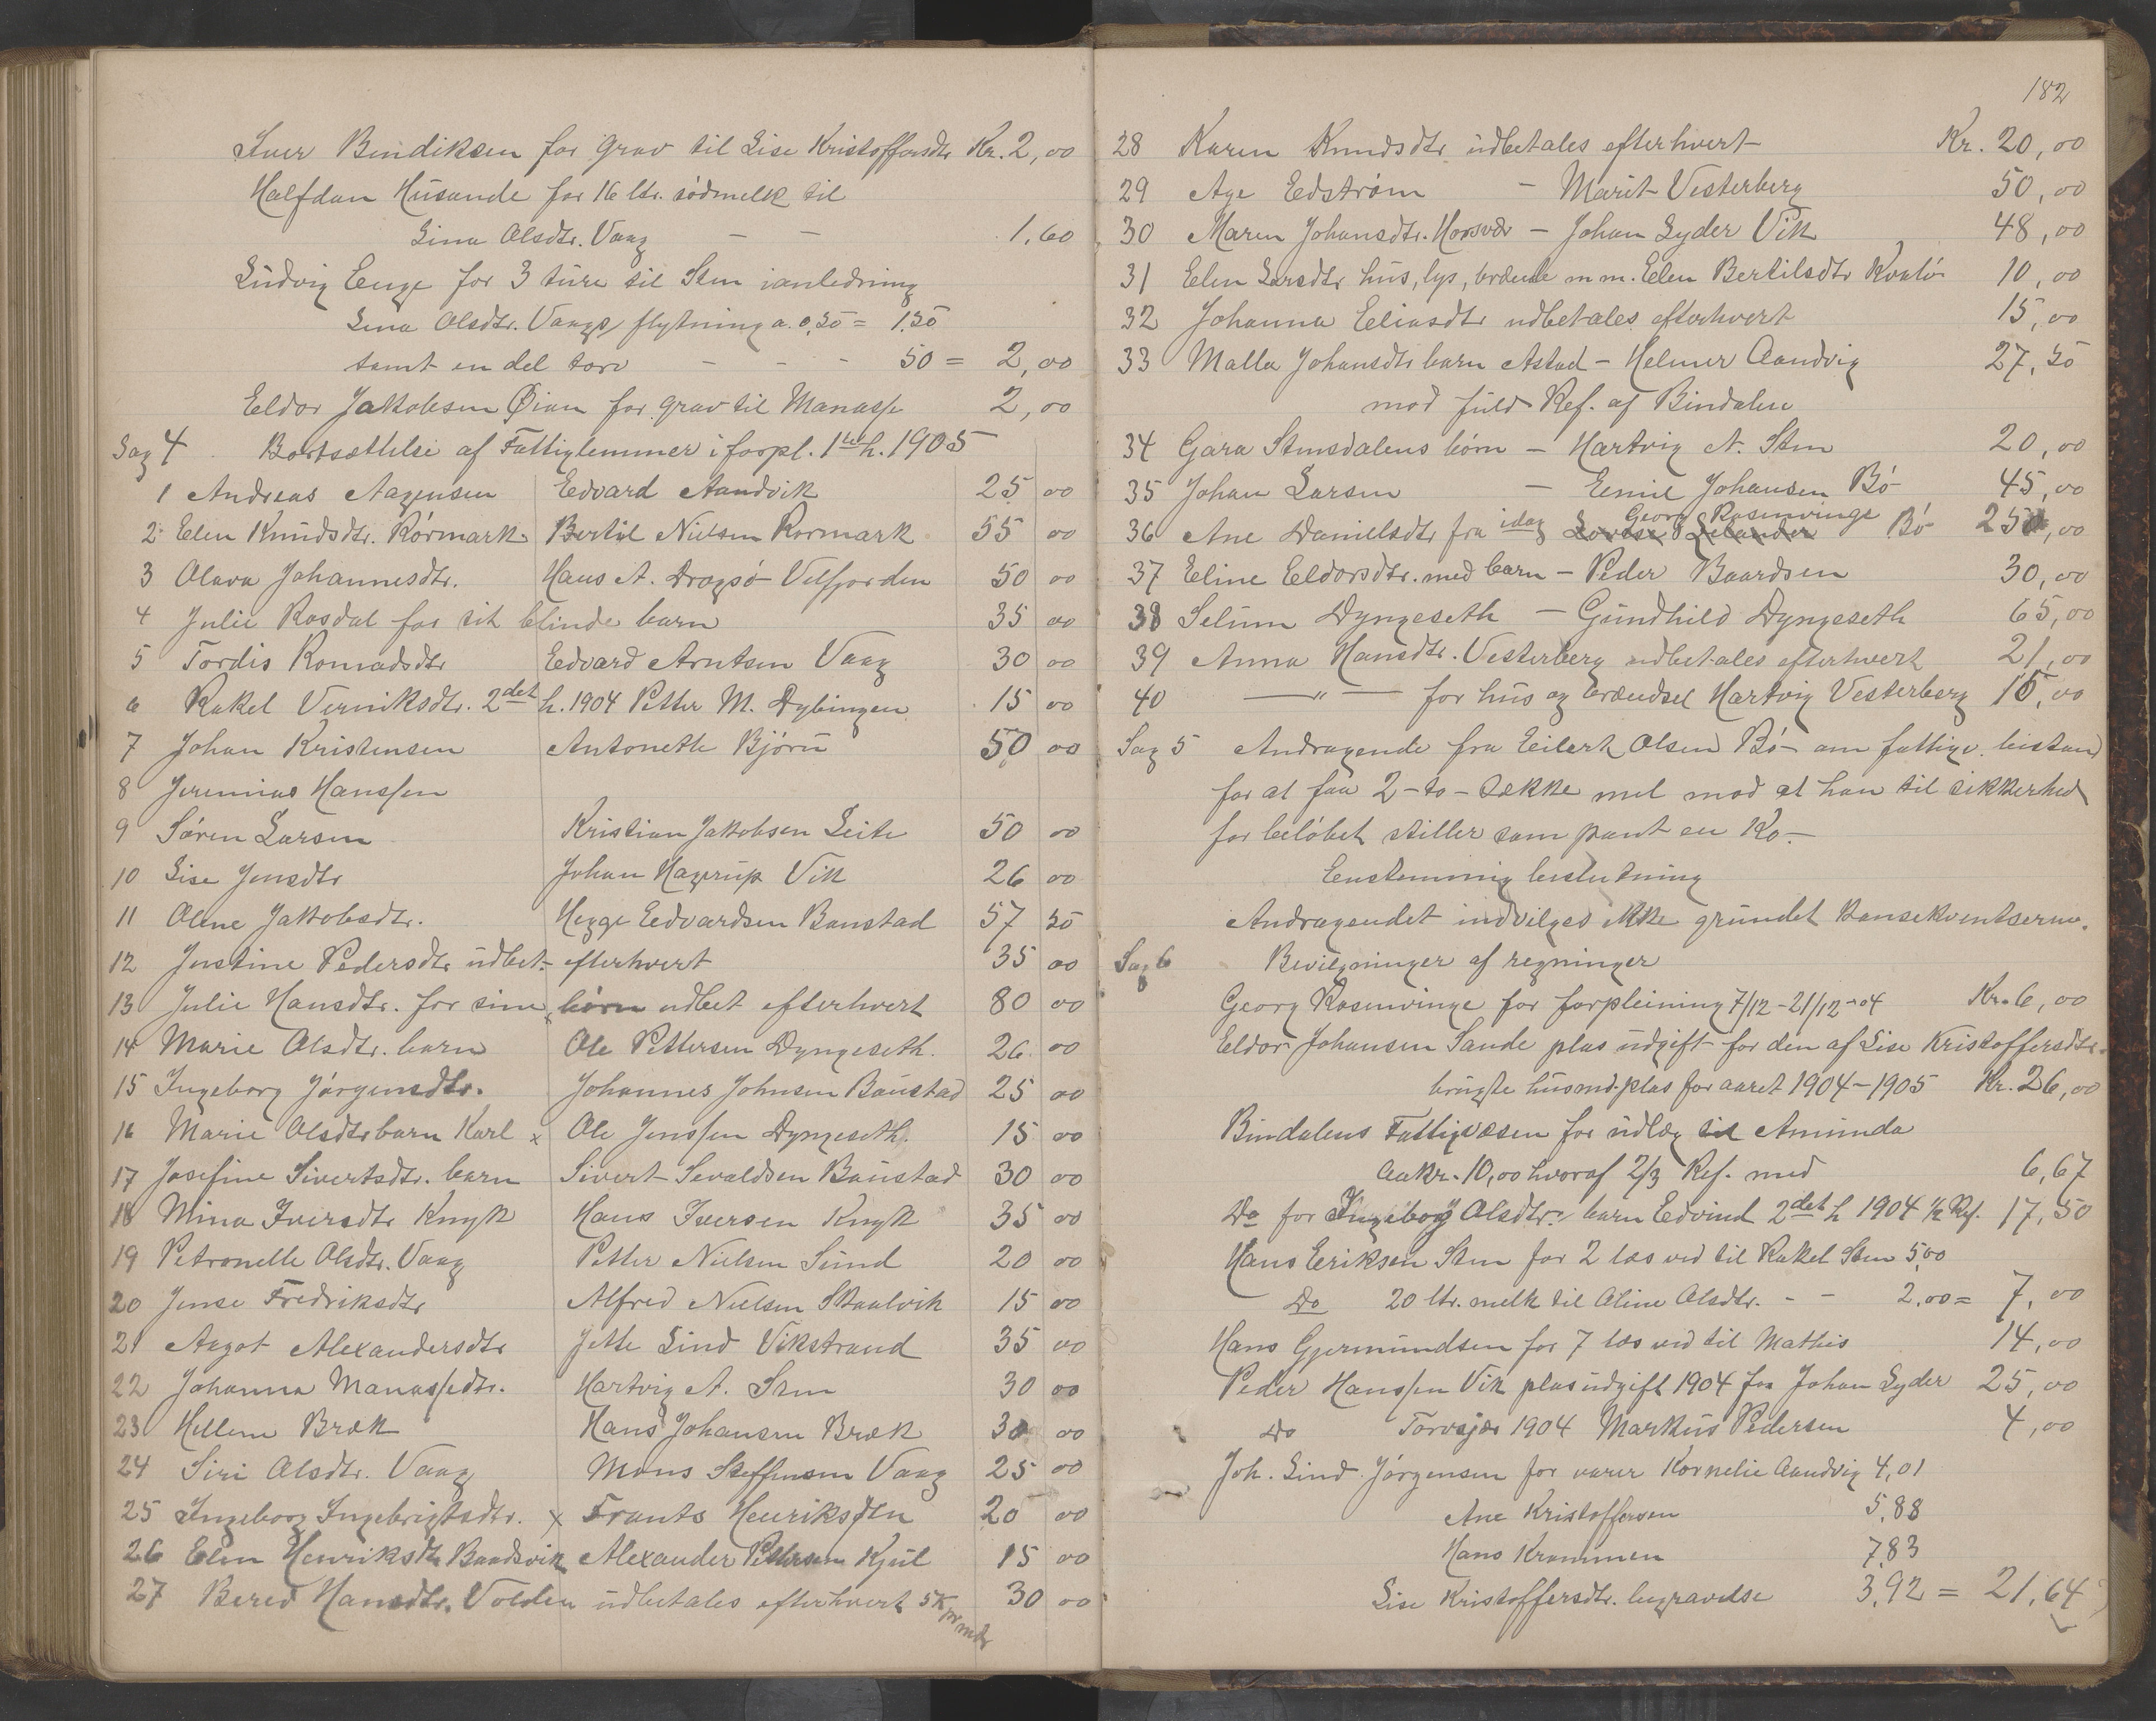 Iver Bendiksen for grav til Lise Kristoffersdtr Kr. 2,00
Halfdan Husande for 16 ltr. södmelk til
Lina Olsdtr. Vaag – – 1,60
Ludvig Enge for 3 ture til Sten ianledning
Lina Olsdtr. Vaags flytning a. 0,50 = 1.50
samt en del torv - - - 50 = 2,00
Eldor Jakobsen Øian for grav til Manasse 2,00
Sag 4 Bortsættelse af Fattiglemmer i forpl. 1ste h. 1905
1 Andreas Aagensen Edvard Aandvik 25 00
2 Elen Knudsdtr. Rörmark Bertil Nielsen Rormark 55 00
3 Olava Johannesdtr. Hans A. Dragsö Velfjorden 50 00
4 Julie Rosdal for sit blinde barn 35 00
5 Tordis Konradsdtr Edvard Arntsen Vaag 30 00
6 Rakel Verniksdtr. 2det h. 1904 Petter M. Dybingen 15 00
7 Johan Kristensen Antonette Bjørü 50 00
8 Jeremias Hanssen
9 Søren Larsen Kristian Jakobsen Leite 50 00
10 Lise Jensdtr Johan Hagerup Vik 26 00
11 Oline Jakobsdtr. Hegge Edvardsen Baustad 57 50
12 Justine Pedersdtr udbet. efterhvert 35 00
13 Julie Hansdtr. for sine börn udbet efterhvert 80 00
14 Marie Olsdtr. barn Ole Pettersen Dyngeseth. 26 00
15 Ingeborg Jörgensdtr. Johannes Johnsen Baustad 25 00
16 Marie Olsdtr barn Karl x Ole Jenssen Dyngeseth. 15 00
17 Josefine Sivertsdtr. barn Sivert Sevaldsen Baustad 30 00
18 Mina Iversdtr Knyk Hans Iversen Knyk 35 00
19 Petronelle Olsdtr. Vaag Petter Nielsen Sund 20 00
20 Jense Fredriksdtr Alfred Nielsen Skaalvik 15 00
21 Aagot Alexandersdtr Jette Lind Vikstrand 35 00
22 Johanna Manassedtr. Hartvig A. Sten 30 00
23 Hellem Bræk Hans Johansen Bræk 30 00
24 Siri Olsdtr. Vaag Mons Steffensen Vaag 25 00
25 Ingeborg Ingebrigtsdtr. x Frants Henrikssen 20 00
26 Elen Henriksdtr Baadsvik Alexander Pettersen Kjul 15 00
27 Bered Hansdtr. Volden udbetales efterhvert 5 K pr mdr 30 00
182
28 Karen Knudsdtr udbetales efterhvert Kr. 20,00
29 Age Edström – Marit Vesterberg 50,00
30 Maren Johansdtr. Horsvær – Johan Lyder Vik 48,00
31 Elen Larsdtr hus, lys, brænde m m. Elen Bertilsdtr Kvalö 10,00
32 Johanna Eliasdtr udbetales efterhvert 15,00
33 Malla Johansdtr barn Astad – Helmer Aandvig 27,50
mod fuld Ref. af Bindalen
34 Gara Stensdalens börn – Hartvig N. Sten 20,00
35 Johan Larsen – Emil Johansen Bö 45,00
Georg Rosenvinge
36 Ane Danielsdtr fra idag Lovise Zelander Bö 25,00
37 Eline Eldorsdtr. med barn – Peder Baardsen 30,00
38 Selium Dyngeseth – Gundhild Dyngeseth 65,00
39 Anna Hansdtr. Vesterberg udbetales efterhvert 21,00
40 —"— for hus og brændsel Hartvig Vesterberg 15,00
Sag 5 Andragende fra Eilert Olsen Bö om fattigv. bistand
for at faa 2-to-sække mel mod at han til sikkerhed
for belöbet stiller som pant en Ko.–
Enstemmig beslutning
Andragendet indvilges ikke grundet konsekventserne.
Sag 6 Bevilgninger af regninger
Georg Rosenvinge for forpleining 7/12 – 21/12 – 04 Kr. 6,00
Eldor Johansen Sande plas udgift for den af Lise Kristoffersdtr.
brugte husmd. plas for aaret 1904–1905 Kr. 26,00
Bindalens Fattigvæsen for udlæg til Aminda
Aakr. 10,00 hvoraf 2/3 Ref. med 6,67
Do for Ingeborg Olsdtr. barn Edvind 2det h 1904 1/2 Ref. 17,50
Hans Eriksen Sten for 2 læs ved til Rakel Sten 5,00
Do 20 ltr. melk til Aline Olsdtr. - - 2,00 = 7,00
Hans Gjermundsen for 7 læs ved til Mathis 14,00
Peder Hanssen Vik plasudgift 1904 for Johan Lyder 25,00
Do Torvsjær 1904 Markus Pedersen 4,00
Joh. Lind Jörgensen for varer Kornelie Aandvig 4,01
Ane Kristoffersen 5,88
Hans Krammen 7,83
Lise Kristoffersdtr. begravelse 3,92 = 21,64